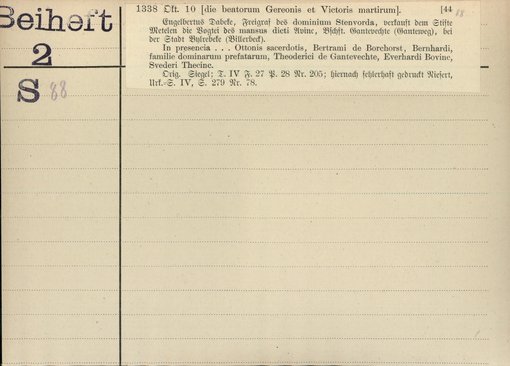 Beiheft
2
S 88
1338 Okt. 10 [die beatorum Gereonis et Victoris martirum]. [44 18
Engelbertus Dabeke, Freigraf des dominium Stenvorda, verkauft dem Stifte
Metelen die Vogtei des mansus dicti Avinc, Bschft. Gantevechte (Gantweg), bei
der Stadt Bylrebeke (Billerbeck).
In presencia . . . Ottonis sacerdotis, Bertrami de Borchorst, Bernhardi,
familie dominarum prefatarum, Theoderici de Gantevechte, Everhardi Bovinc,
Svederi Thecinc.
Orig. Siegel; T. IV F. 27 P. 28 Nr. 205; hiernach fehlerhaft gedruckt Niesert,
Urk.-S. IV, S. 279 Nr. 78.